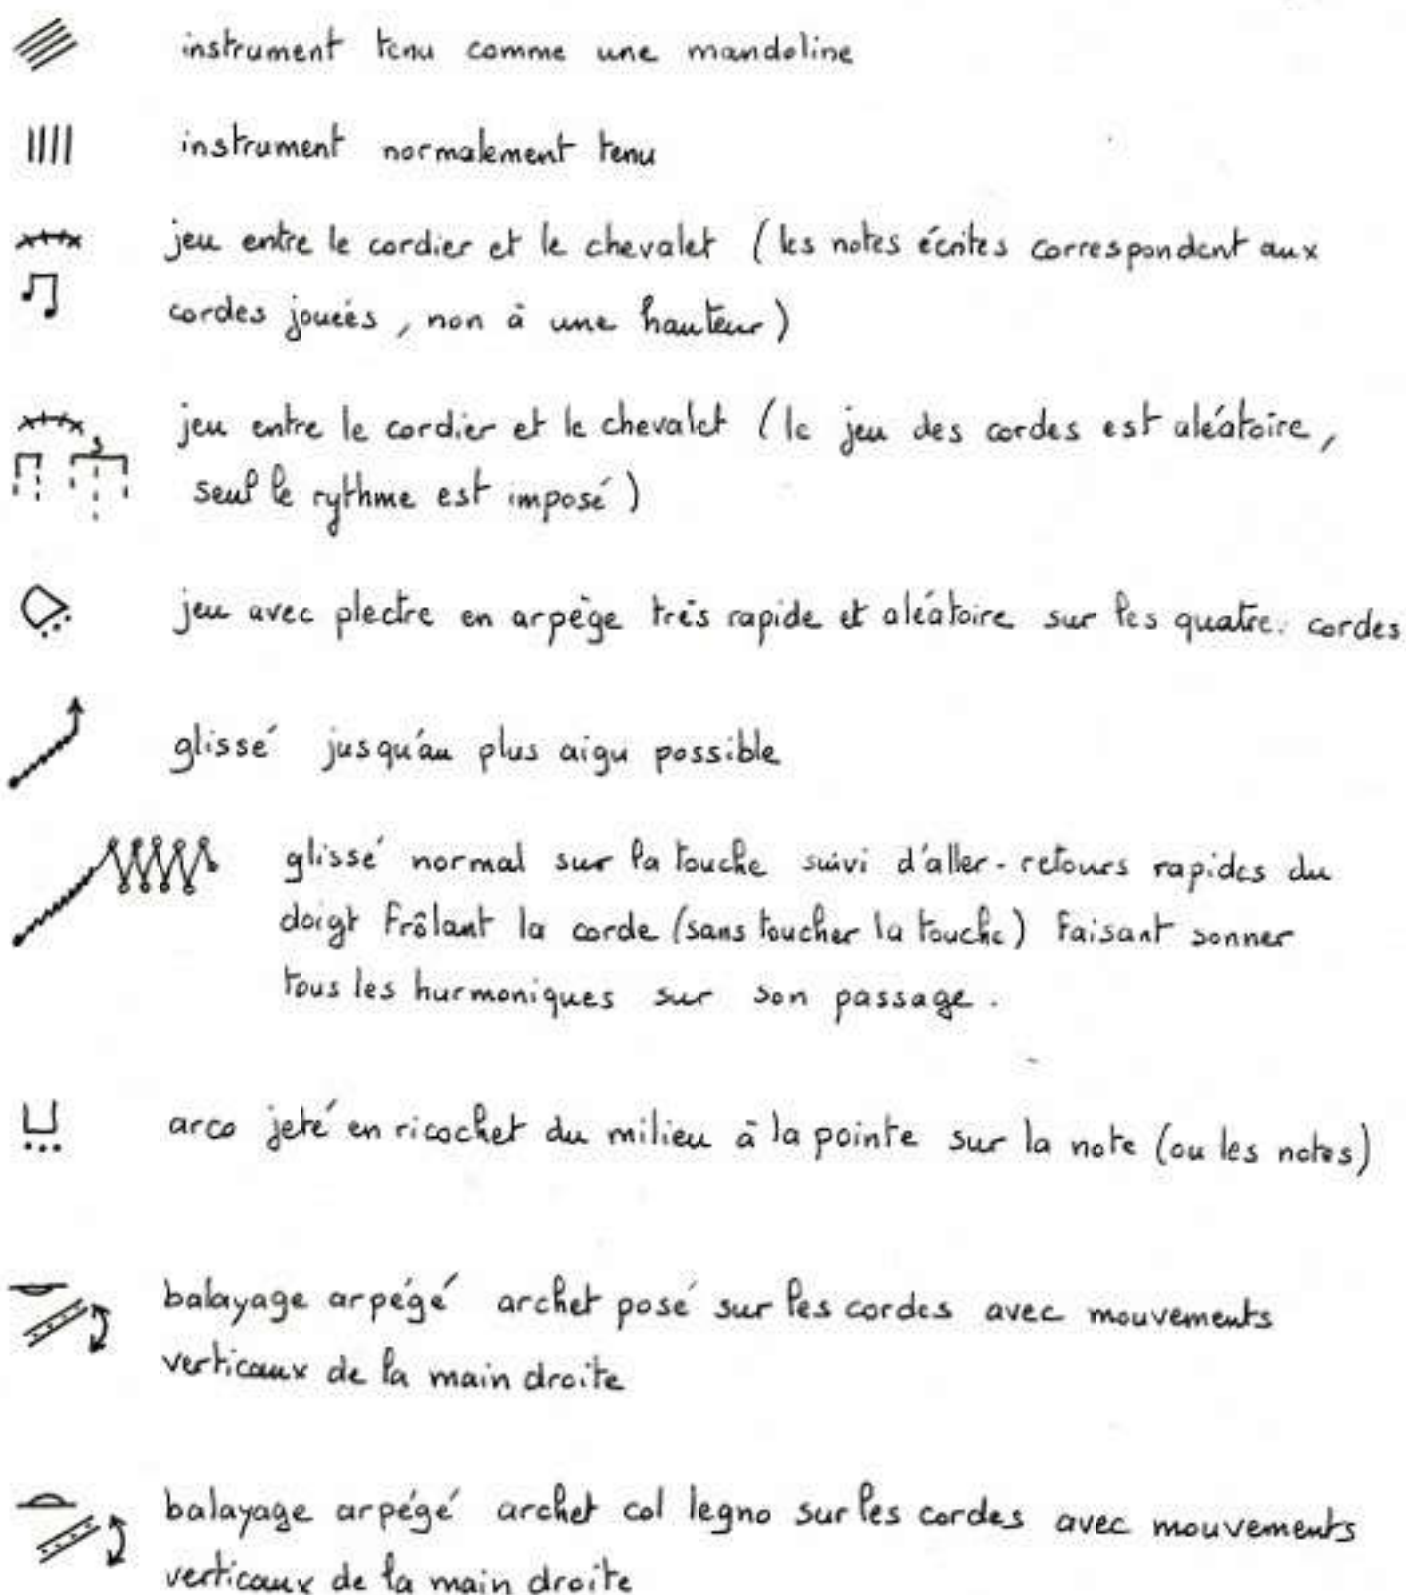 instrument tenu comme une mandoline
instrument normalement tenu
jeu entre le cordier et le chevalet (les notes écrites correspondent aux
cordes jouées, non à une hauteur)
jeu entre le cordier et le chevalet (le jeu des cordes est aléatoire,
3
seul le rythme est imposé)
jeu avec plectre en arpège très rapide et aléatoire sur les quatre cordes
glissé jusqu'au plus aigu possible
glissé normal sur la touche suivi d'aller-retours rapides du
doigt frôlant la corde (sans toucher la touche) faisant sonner
tous les harmoniques sur son passage.
arco jeté en ricochet du milieu à la pointe sur la note (ou les notes)
balayage arpégé archet posé sur les cordes avec mouvements
verticaux de la main droite
balayage arpégé archet col legno sur les cordes avec mouvements
verticaux de la main droite